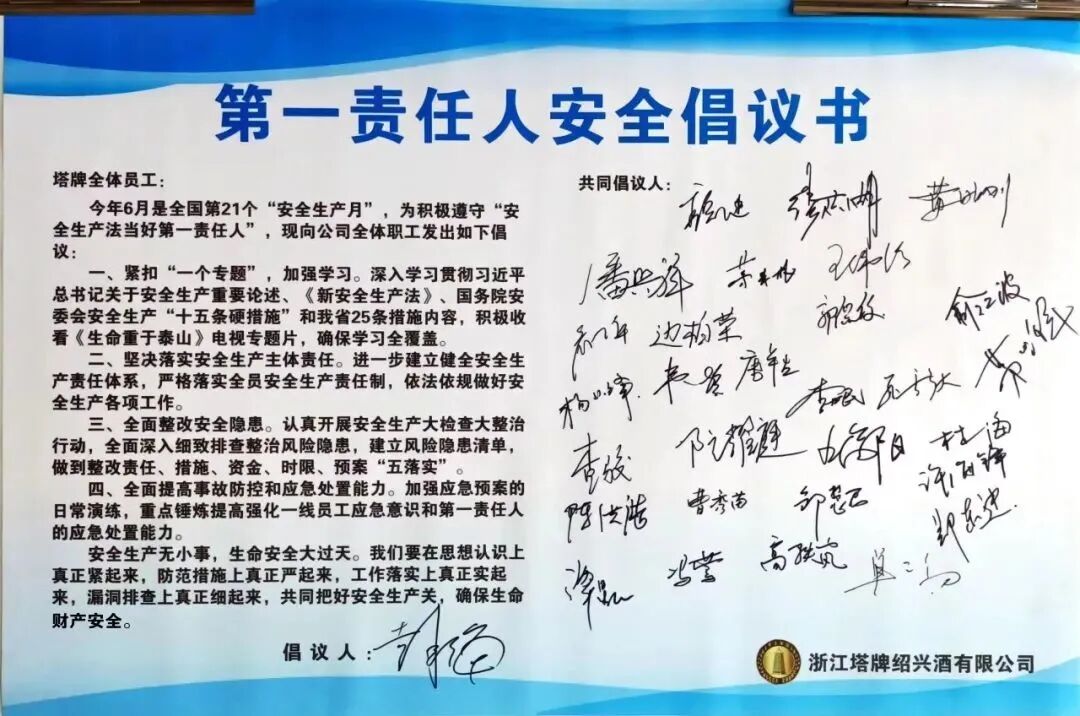 第一责任人安全倡议书
塔牌全体员工：
今年6月是全国第21个“安全生产月”，为积极遵守“安
全生产法当好第一责任人”，现向公司全体职工发出如下
倡议：
一、紧扣“一个专题”，加强学习。深入学习贯彻习近平
总书记关于安全生产重要论述、《新安全生产法》、国务院安
委会安全生产“十五条硬措施”和我省25条措施内容，积极收
看《生命重于泰山》电视专题片，确保学习全覆盖。
二、坚决落实安全生产主体责任。进一步建立健全安全生
产责任体系，严格落实全员安全生产责任制，依法依规做好安
全生产各项工作。
三、全面整改安全隐患。认真开展安全生产大检查大整治
行动，全面深入细致排查整治风险隐患，建立风险隐患清单，
做到整改责任、措施、资金、时限、预案“五落实”。
四、全面提高事故防控和应急处置能力。加强应急预案的
日常演练，重点锤炼提高强化一线员工应急意识和第一责任人
的应急处置能力。
安全生产无小事，生命安全大过天。我们要在思想认识上
真正紧起来，防范措施上真正严起来，工作落实上真正实起
来，漏洞排查上真正细起来，共同把好安全生产关，确保生命
财产安全。
倡议人：
共同倡议人：
潘兴祥
边柏荣
阮耀庭
曹秀苗
冯莹
浙江塔牌绍兴酒有限公司